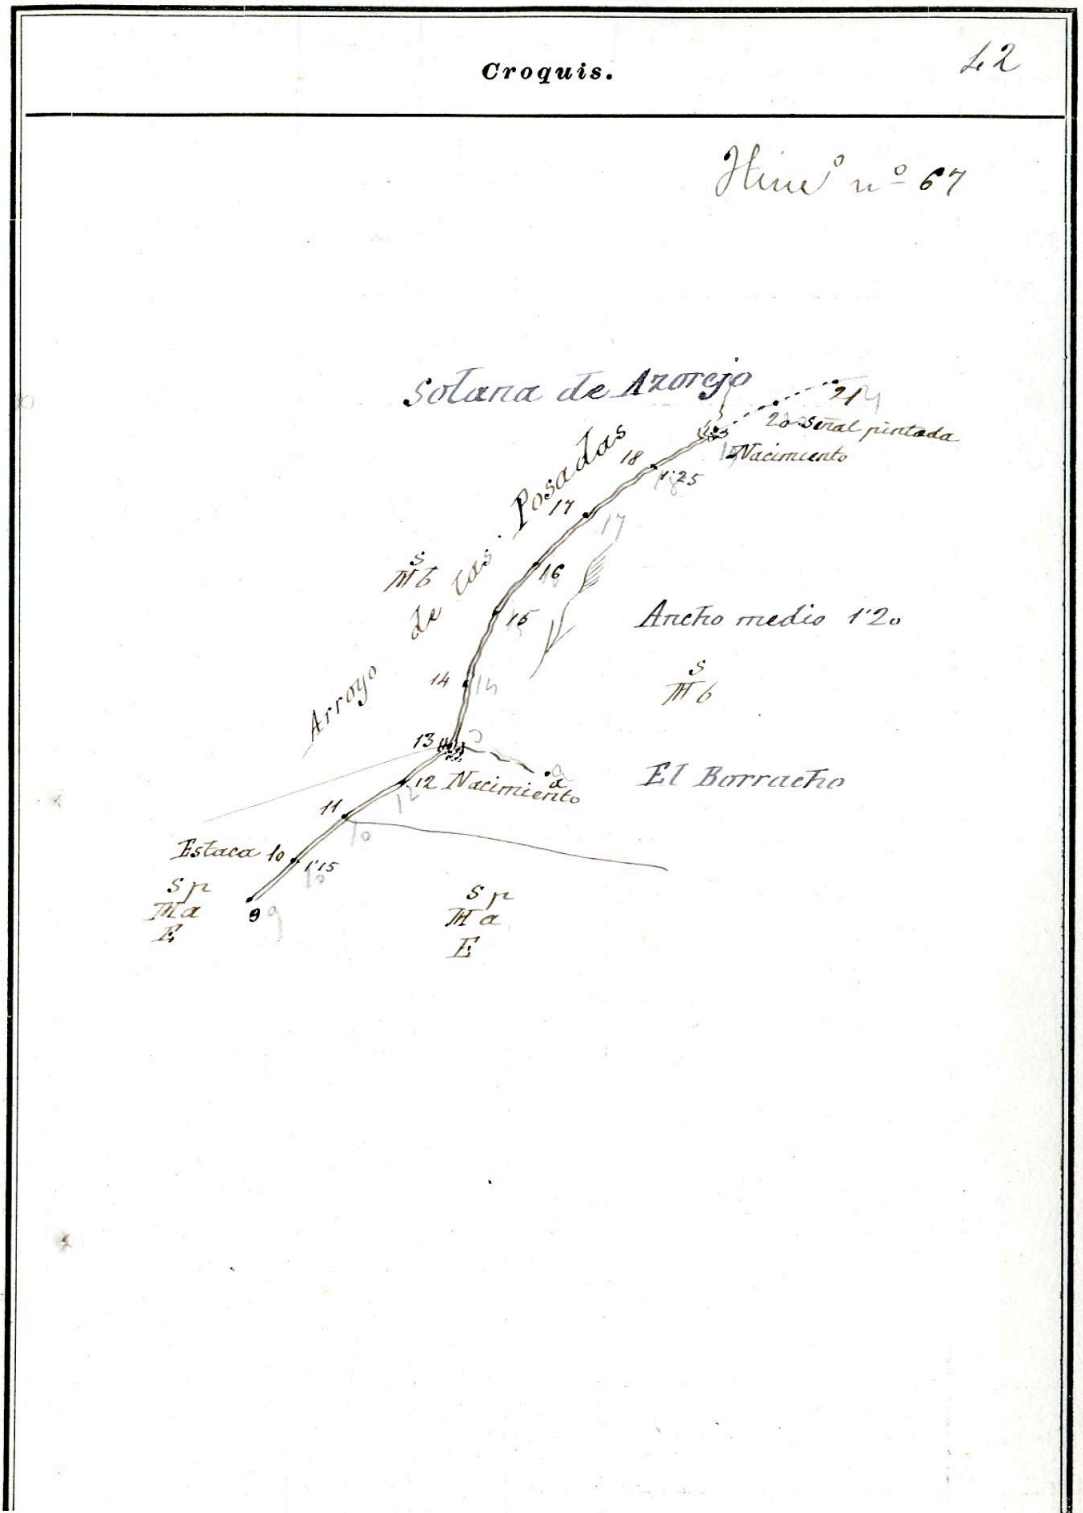 Croquis.
42
nº 67
Solana de Azorejo
21
20 Señal pintada
Nacimiento
18
1'25
17
17
Arroyo de las Posadas
S
M b
16
15
Ancho medio 1'20
S
M b
14
14
13
12 Nacimiento
12
a
El Borracho
11
10
Estaca 10
1'15
S p
M a
E
9
9
S p
M a
E